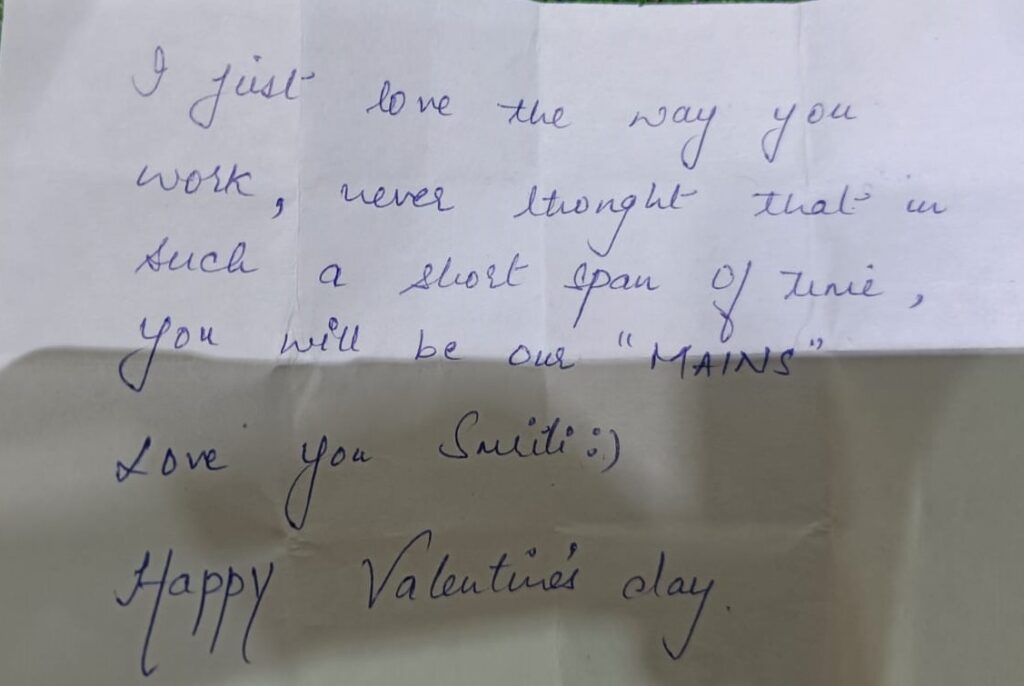 I just love the way you
work, never thought that in
such a short span of time,
you will be our "MAINS"
Love you Smiti :)
Happy Valentine's day.